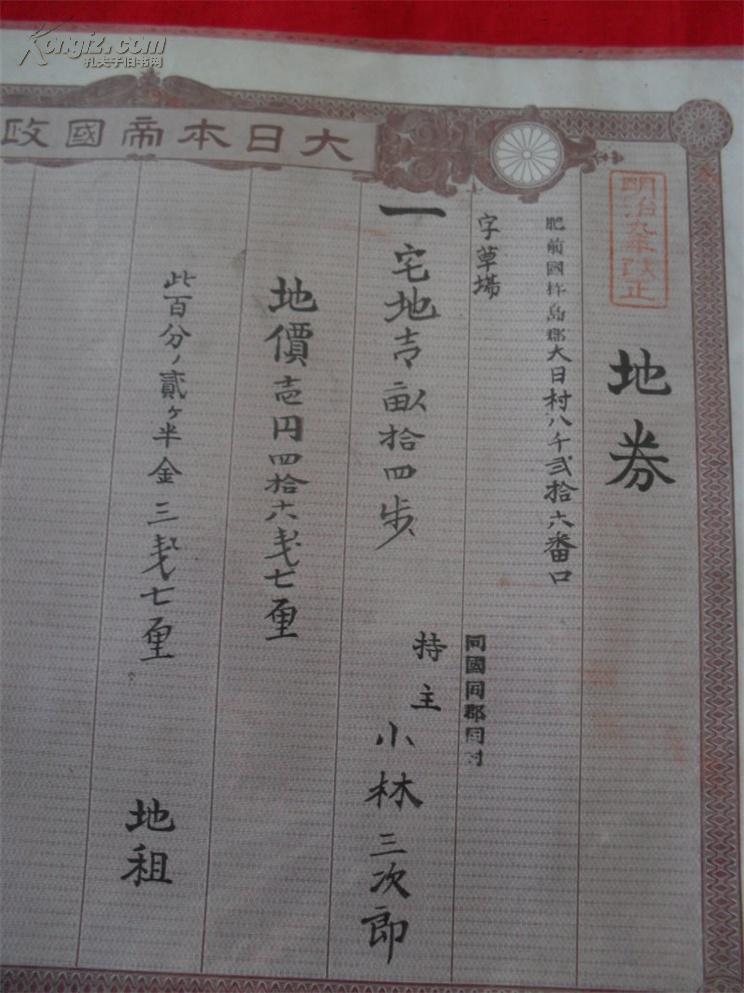 Kongfz.com
孔夫子旧书网
大日本帝國政
明治九年改正
地券
肥前國杵島郡大日村八千弐拾六番口
字草場
一宅地壱畝拾四歩
同國同郡同村
持主 小林三次郎
地價壱円四拾六銭七厘
此百分ノ貳ケ半金三銭七厘
地租